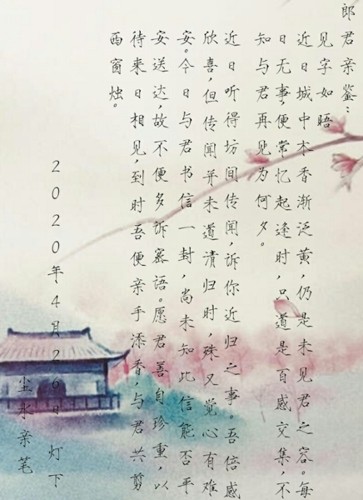 郎君亲鉴:
见字如晤
近日城中木香渐泛黄,仍是未见君之容。每
日无事,便常忆起逢时,只道是百感交集,不
知与君再见为何夕。
近日听得坊间传闻,诉你近归之事。吾倍感
欣喜,但传闻并未道清归时殊又觉心有难
安。今日与君书信一封,尚未知此信能否平
安送达,故不便多诉蜜语。愿君善自珍重,以
待来日相见,到时吾便亲手添香,与君共剪
西窗烛。
2020年4月26日灯下
尘水亲笔